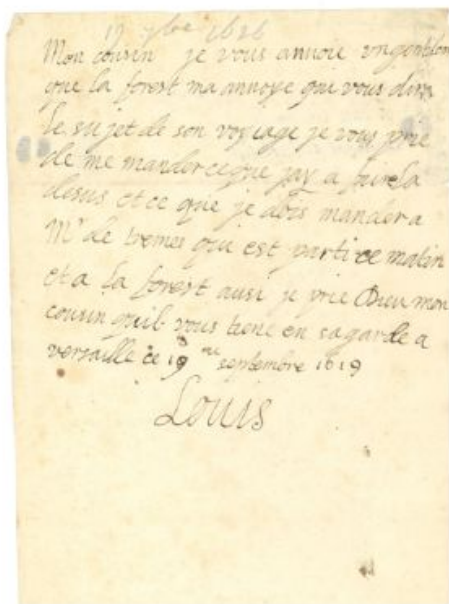 19 7bre 1626
Mon cousin je vous anvoie ungentilom
que la forest ma annoye qui vous dira
le sujet de son voyage je vous prie
de me mander ce que jay a faire la
desus et ce que je dois mander a
Mr de tremes qui est parti ce matin
et a la forest ausi je prie Dieu mon
cousin quil vous tiene en sa garde a
versaille ce 19 me septembre 1619
Louis